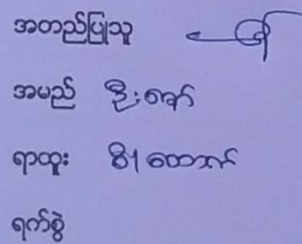 အတည်ပြုသူ
အမည် ဦးဇော်
ရာထူး စီ၊ထောက်
ရက်စွဲ